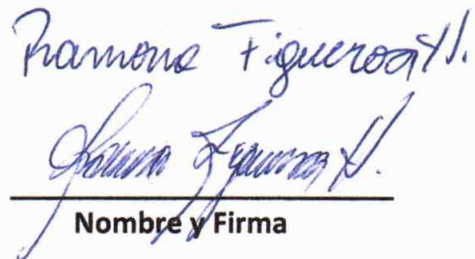 Ramona Figueroa H.
Ramona Figueroa H.
Nombre y Firma